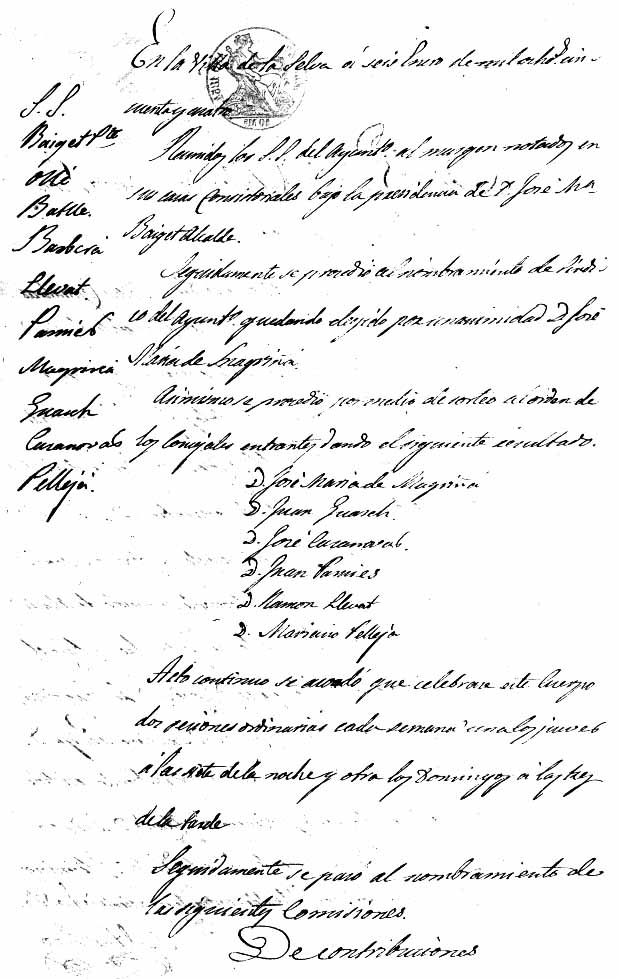 En la Villa de la Selva á seis Enero de mil ocho.t cin-
cuenta y cuatro
S. S.
Baiget P.te
Ollé
Batlle.
Barberá
Llevat
Pamies
Magriñá
Guasch
Cazanovas
Pellejá.
Reunidos los S.S. del Ayunt.o al margen notados en
sus casas Consistoriales bajo la presidencia de D. José Ma.
Baiget Alcalde.
Seguidamente se procedio al nombramiento de Síndi-
co del Ayunt.o quedando elegido por unanimidad D. José
Maria de Magriñá.
Asimismo se procedio por medio de sorteo al orden de
los Concejales entrantes dando el siguiente resultado.
D. José Maria de Magriñá
D. Juan Guasch.
D. José Cazanovas.
D. Juan Pamies
D. Ramon Llevat
D. Mariano Pellejá
Acto continuo se acordó que celebrara este Cuerpo
dos sesiones ordinarias cada semana una los jueves
á las siete de la noche y otra los Domingos á las tres
de la tarde
Seguidamente se pasó al nombramiento de
las siguientes Comisiones.
De contribuciones